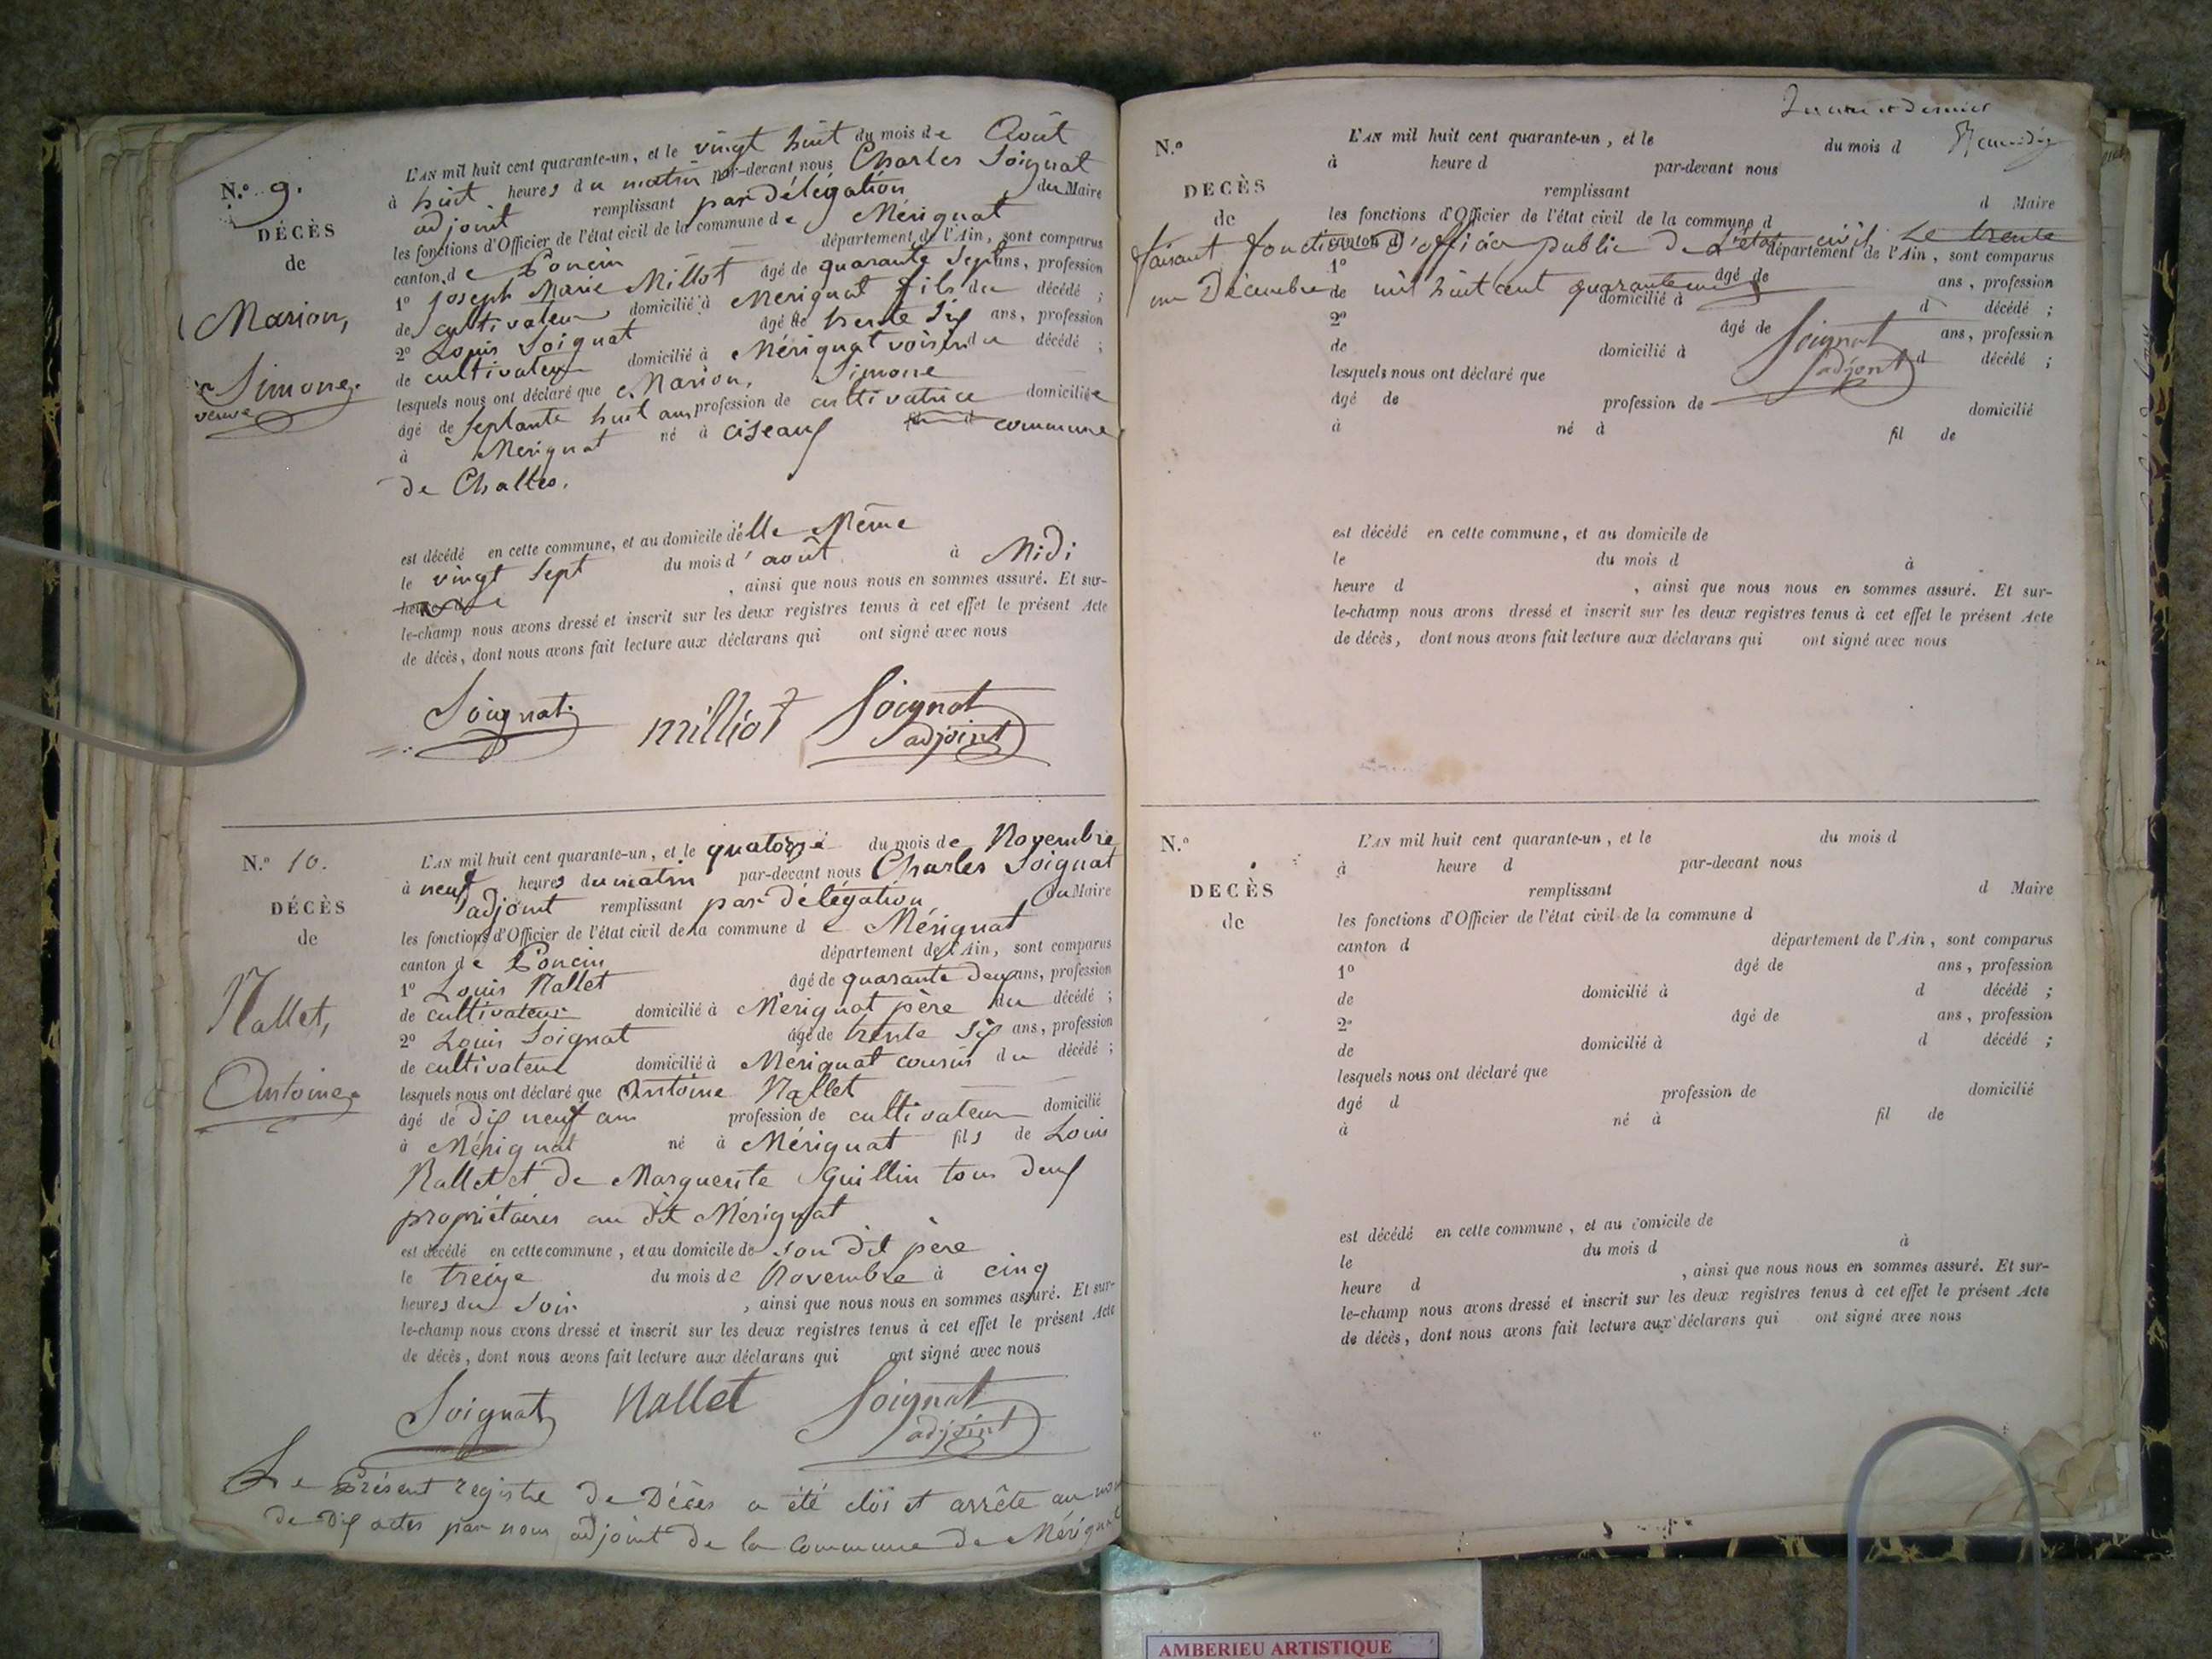 N.º 9.
DÉCÈS
de
Marion,
Simone.
veuve
L'AN mil huit cent quarante-un, et le vingt huit du mois de Août
à huit heures du matin par-devant nous Charles Soignat
adjoint remplissant par délégation du Maire
les fonctions d'Officier de l'état civil de la commune de Mérignat
canton de Poncin département de l'Ain, sont comparus
1º Joseph Marie Millot âgé de quarante Sept ans, profession
de cultivateur domicilié à Mérignat fils du décédé ;
2º Louis Soignat âgé de trente Six ans, profession
de cultivateur domicilié à Mérignat voisin du décédé ;
lesquels nous ont déclaré que Marion, Simone
âgé de Septante huit ans profession de cultivatrice domiciliée
à Mérignat né à Ciseaux fil d commune
de Challes.
est décédé en cette commune, et au domicile d'elle Même
le vingt Sept du mois d'août à Midi
heures de , ainsi que nous nous en sommes assuré. Et sur-
le-champ nous avons dressé et inscrit sur les deux registres tenus à cet effet le présent Acte
de décès, dont nous avons fait lecture aux déclarans qui ont signé avec nous
Soignat milliot Soignat
adjoint
N.º 10.
DÉCÈS
de
Nallet,
Antoine.
L'AN mil huit cent quarante-un, et le quatorze du mois de Novembre
à neuf heures du matin par-devant nous Charles Soignat
adjoint remplissant par délégation du Maire
les fonctions d'Officier de l'état civil de la commune de Mérignat
canton de Poncin département de l'Ain, sont comparus
1º Louis Nallet âgé de quarante deux ans, profession
de cultivateur domicilié à Mérignat père du décédé ;
2º Louis Soignat âgé de trente Six ans, profession
de cultivateur domicilié à Mérignat cousin du décédé ;
lesquels nous ont déclaré que Antoine Nallet
âgé de dix neuf ans profession de cultivateur domicilié
à Mérignat né à Mérignat fils de Louis
Nallet et de Marguerite Guillin tous deux
propriétaires au dit Mérignat
est décédé en cette commune, et au domicile de son dit père
le treize du mois de Novembre à cinq
heures du Soir , ainsi que nous nous en sommes assuré. Et sur-
le-champ nous avons dressé et inscrit sur les deux registres tenus à cet effet le présent Acte
de décès, dont nous avons fait lecture aux déclarans qui ont signé avec nous
Soignat Nallet Soignat
adjoint
Le Présent registre de Décès a été clos et arrêté au
de Dix actes par nous adjoint de la Commune de Mérignat
et dernier
N.º
DECÈS
de
L'AN mil huit cent quarante-un, et le du mois d
à heure d par-devant nous
remplissant d Maire
les fonctions d'Officier de l'état civil de la commune d
faisant fonction d'officier public de L'état civil Le trente
canton d département de l'Ain, sont comparus
1º âgé de ans, profession
un Décembre mil huit cent quarante un
de domicilié à d décédé ;
2º âgé de ans, profession
Soignat
adjoint
de domicilié à d décédé ;
lesquels nous ont déclaré que
âgé de profession de domicilié
à né à fil de
est décédé en cette commune, et au domicile de
le du mois d à
heure d , ainsi que nous nous en sommes assuré. Et sur-
le-champ nous avons dressé et inscrit sur les deux registres tenus à cet effet le présent Acte
de décès, dont nous avons fait lecture aux déclarans qui ont signé avec nous
N.º
DECÈS
de
L'AN mil huit cent quarante-un, et le du mois d
à heure d par-devant nous
remplissant d Maire
les fonctions d'Officier de l'état civil de la commune d
canton d département de l'Ain, sont comparus
1º âgé de ans, profession
de domicilié à d décédé ;
2º âgé de ans, profession
de domicilié à d décédé ;
lesquels nous ont déclaré que
âgé d profession de domicilié
à né à fil de
est décédé en cette commune, et au domicile de
le du mois d à
heure d , ainsi que nous nous en sommes assuré. Et sur-
le-champ nous avons dressé et inscrit sur les deux registres tenus à cet effet le présent Acte
de décès, dont nous avons fait lecture aux déclarans qui ont signé avec nous
AMBERIEU ARTISTIQUE